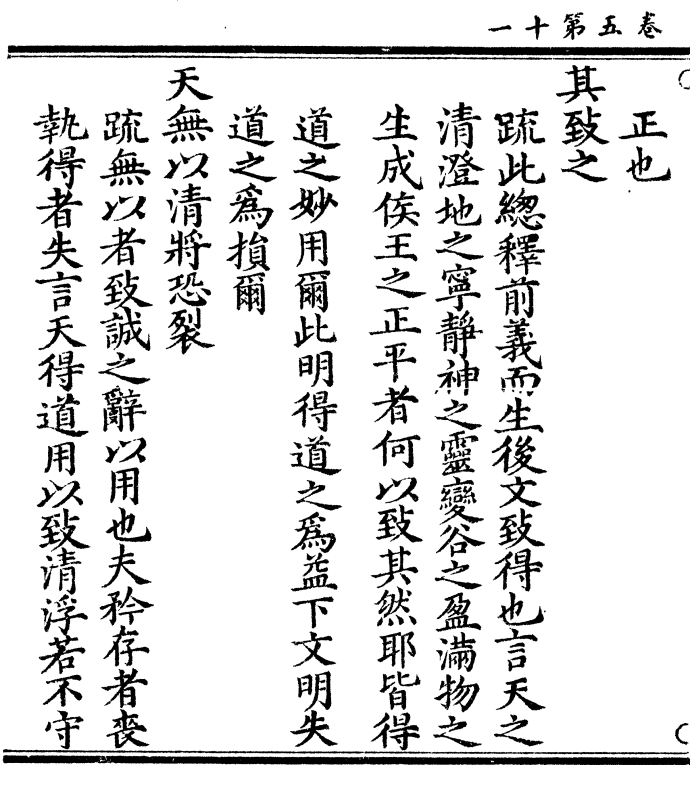 卷五第十一
正也
其致之
疏此總釋前義而生後文致得也言天之
清澄地之寧靜神之靈變谷之盈滿物之
生成侯王之正平者何以致其然耶皆得
道之妙用爾此明得道之爲益下文明失
道之爲損爾
天無以清將恐裂
疏無以者致誠之辭以用也夫矜存者喪
執得者失言天得道用以致清浮若不守